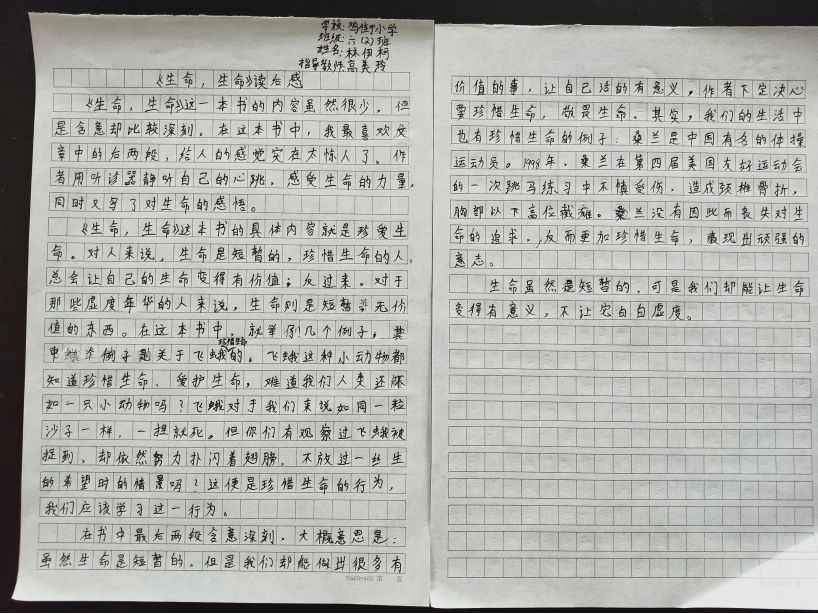 学校:鸣街小学
班级:六(2)班
姓名:林伊柯
指导教师:高美玲
《生命,生命》读后感
《生命,生命》这一本书的内容虽然很少,但
是含意却比较深刻。在这本书中,我最喜欢文
章中的后两段,给人的感觉实在太惊人了。作
者用听诊器静听自己的心跳,感受生命的力量,
同时又写了对生命的感悟。
《生命,生命》这本书的具体内容就是珍爱生
命。对人来说,生命是短暂的,珍惜生命的人,
总会让自己的生命变得有价值;反过来,对于
那些虚度年华的人来说,生命则是短暂无价
值的东西。在这本书中,就举例几个例子,其
珍惜生命
中 例子是关于飞蛾的。飞蛾这种小动物都
知道珍惜生命、爱护生命,难道我们人类还不
如一只小动物吗?飞蛾对于我们来说如同一粒
沙子一样,一捏就死。但你们有观察过飞蛾被
捉到,却依然努力扑闪着翅膀,不放过一丝生
的希望时的情景吗?这便是珍惜生命的行为,
我们应该学习这一行为。
在书中最后两段含意深刻,大概意思是:
虽然生命是短暂的,但是我们却能做出很多有
10×20=400 第 页
价值的事,让自己活的有意义。作者下定决心
要珍惜生命,敬畏生命。其实,我们的生活中
也有珍惜生命的例子:桑兰是中国有名的体操
运动员。1998年,桑兰在第四届美国友好运动会
的一次跳马练习中不慎受伤,造成颈椎骨折,
胸部以下高位截瘫。桑兰没有因此而丧失对生
命的追求,反而更加珍惜生命,表现出顽强的
意志。
生命虽然是短暂的,可是我们却能让生命
变得有意义,不让它白白虚度。